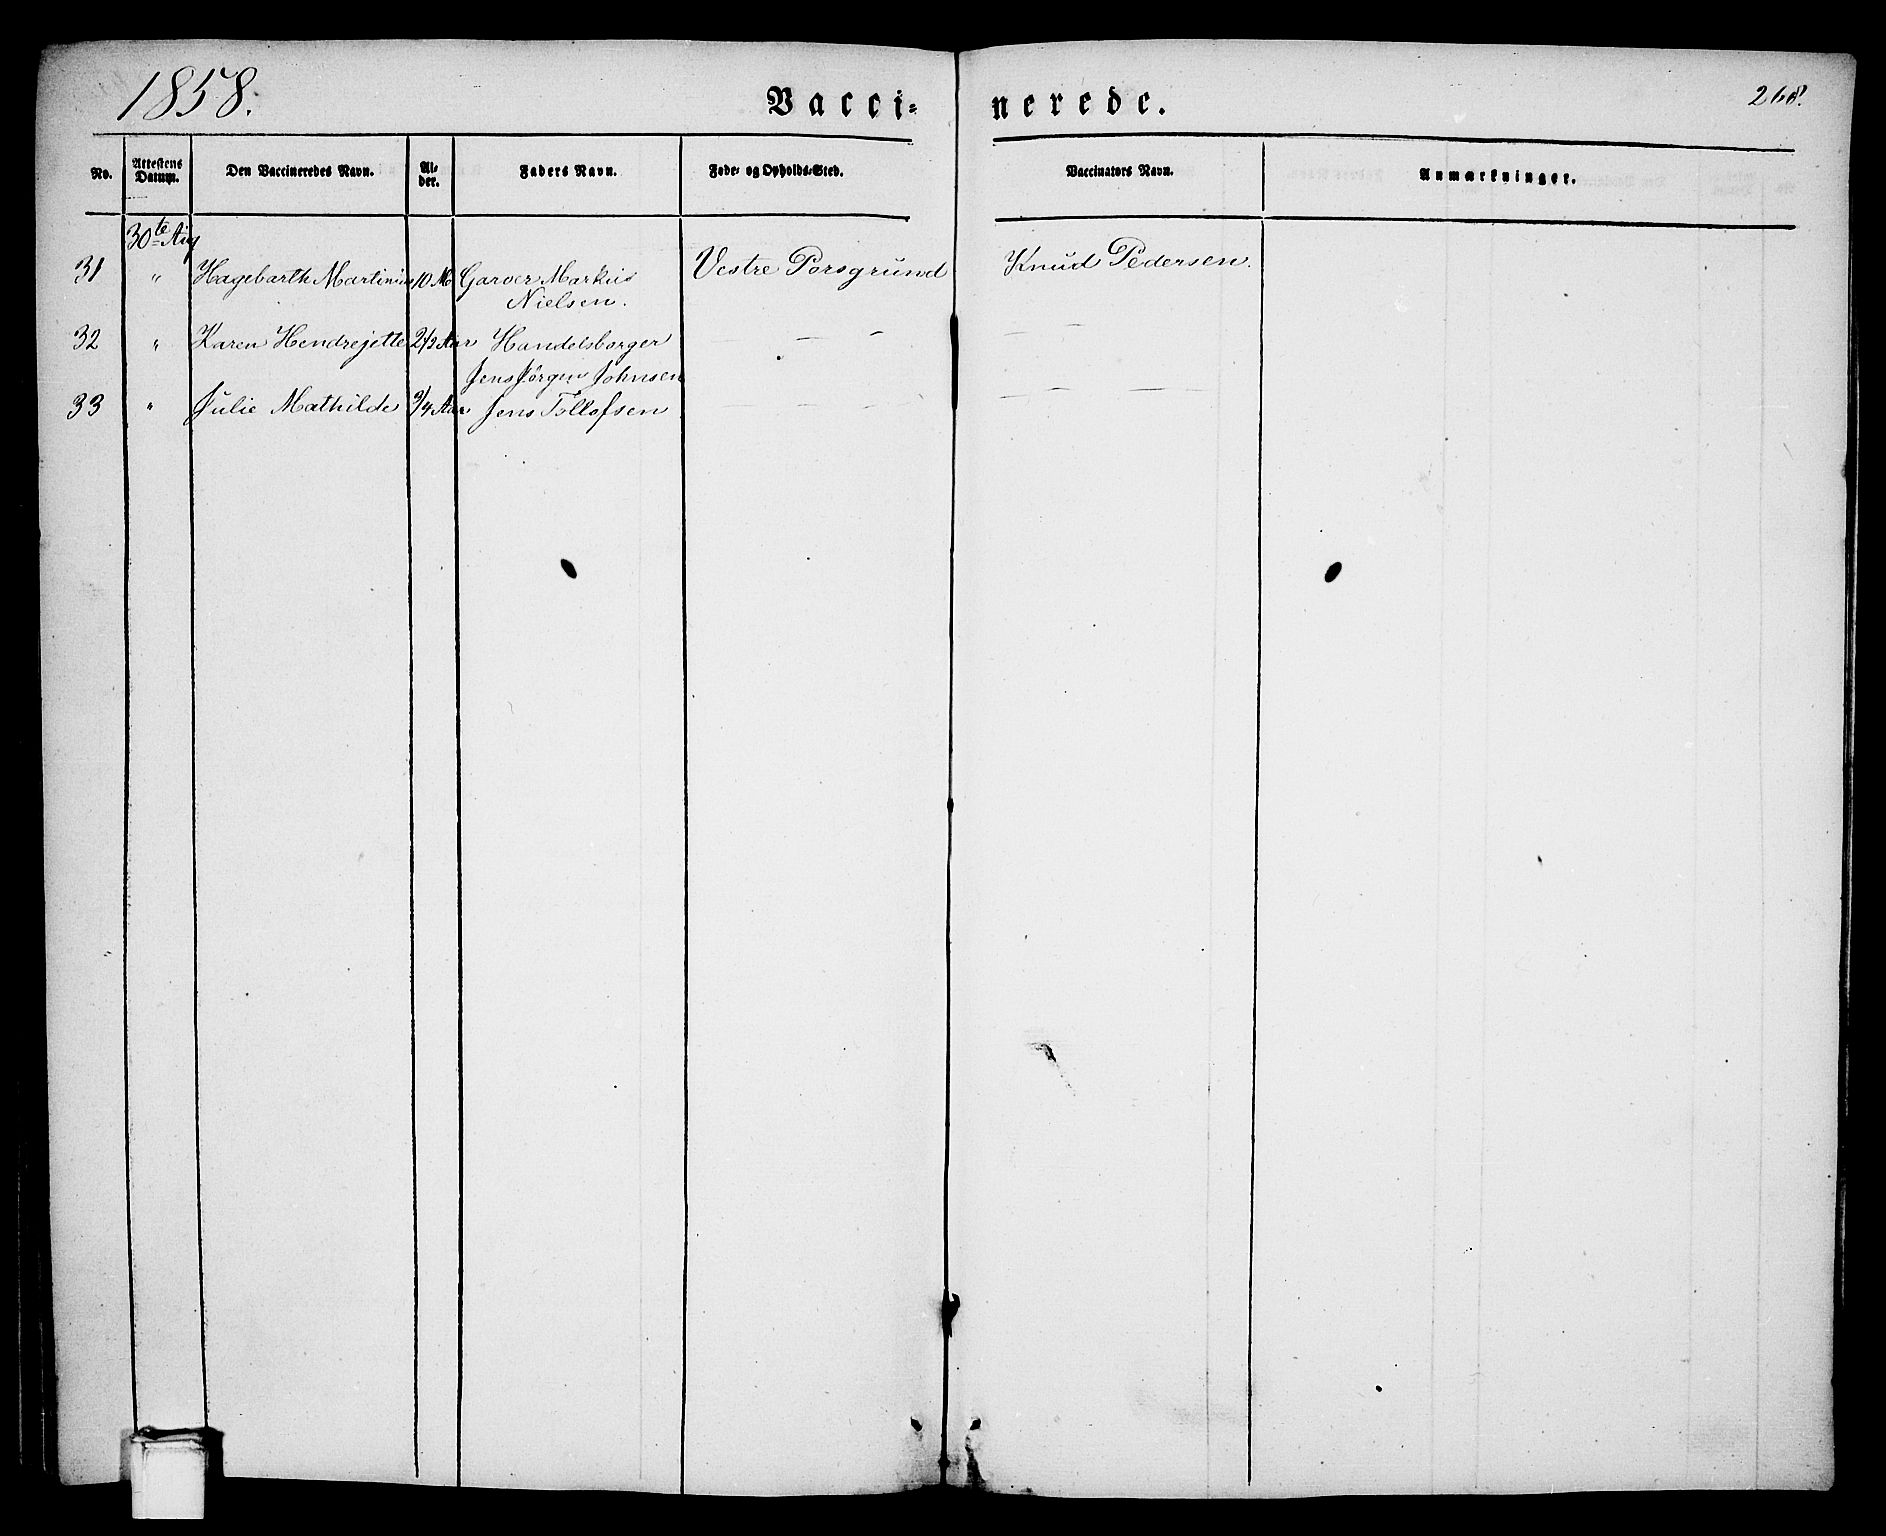 1858. Vacci= nerede. 268.
No. Attestens Datum. Den Vaccineredes Navn. Al= der. Faders Navn. Føde= og Opholds=Sted. Vaccinators Navn. Anmærkninger.
30te Aug
31 " Hagebarth Martinius 10 M Garver Markus Vestre Porsgrund Knud Pedersen.
Nielsen.
32 " Karen Hendrejette 2 1/2 Aar Handelsborger — — — —
Jens Jørgen Johnsen
33 " Julie Mathilde 3/4 Aar Jens Tollofsen — — — —